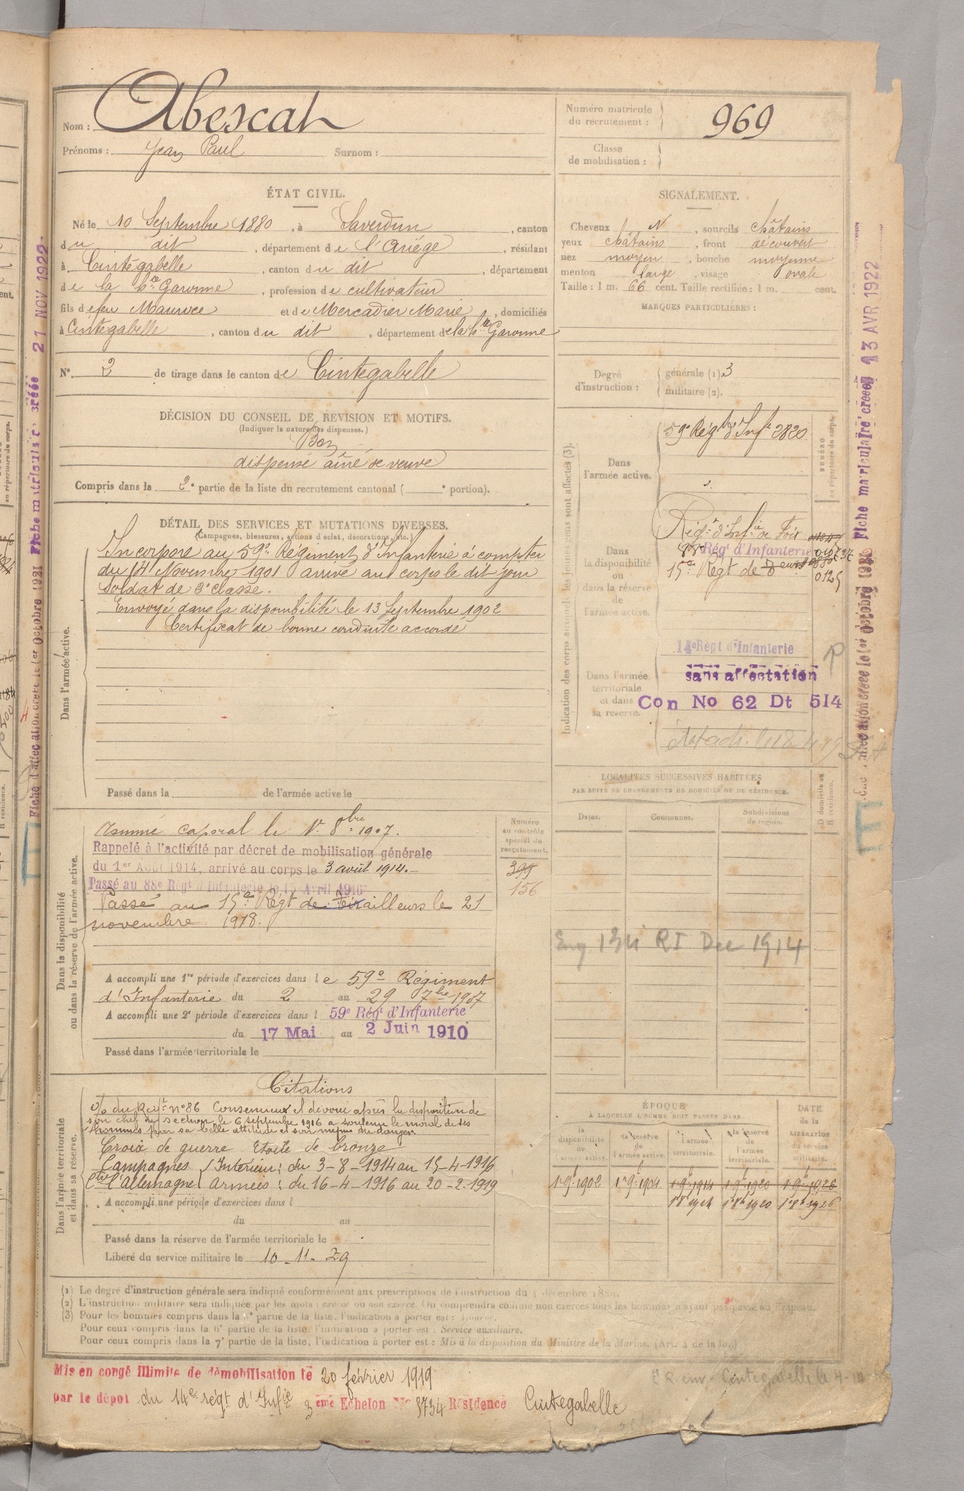 Nom : Abescat
Prénoms : Jean Paul Surnom :
Numéro matricule du recrutement : 969
Classe de mobilisation :
ÉTAT CIVIL.
Né le 10 Septembre 1880, à Saverdun, canton
du dit, département de l'Ariège, résidant
à Cintegabelle, canton du dit, département
de la hte Garonne, profession de cultivateur
fils de feu Maurice et de Mercadier Marie, domiciliés
à Cintegabelle, canton du dit, département de la hte Garonne
N° 2 de tirage dans le canton de Cintegabelle
SIGNALEMENT.
Cheveux N, sourcils châtains
yeux châtains, front découvert
nez moyen, bouche moyenne
menton large, visage ovale
Taille : 1 m. 66 cent. Taille rectifiée : 1 m. cent.
MARQUES PARTICULIÈRES :
Degré d'instruction : générale (1) 3
militaire (2).
DÉCISION DU CONSEIL DE REVISION ET MOTIFS.
(Indiquer la nature des dispenses.)
Bon
dispensé aîné de veuve
Compris dans la 2e partie de la liste du recrutement cantonal ( e portion).
DÉTAIL DES SERVICES ET MUTATIONS DIVERSES.
(Campagnes, blessures, actions d'éclat, décorations, etc.)
Dans l'armée active.
Incorporé au 59e Régiment d'Infanterie à compter
du 14 Novembre 1901 arrivé au corps le dit jour
soldat de 2e classe.
Envoyé dans la disponibilité le 13 Septembre 1902
Certificat de bonne conduite accordé
Passé dans la de l'armée active le
Indication des corps auxquels les jeunes gens sont affectés (3).
NUMÉRO au répertoire du corps.
Dans l'armée active.
59e Régt d'Infie 2820
Dans la disponibilité ou dans la réserve de l'armée active.
Régt d'Infie de Foix
Rég' d'Infanterie
15e Régt de
Dans l'armée territoriale et dans sa réserve.
14e Régt d'Infanterie
sans affectation
Con No 62 Dt 514
LOCALITÉS SUCCESSIVES HABITÉES
PAR SUITE DE CHANGEMENTS DE DOMICILE OU DE RÉSIDENCE.
Dates. Communes. Subdivisions de région. D domicile ou R résidence.
134 RI Dec 1914
Dans la disponibilité ou dans la réserve de l'armée active.
Numéro au contrôle spécial du recrutement.
399
156
Nommé caporal le 1er 8bre 1907.
Rappelé à l'activité par décret de mobilisation générale
du 1er Août 1914, arrivé au corps le 3 août 1914.
Passé au 88e Régt d'Infanterie le 15 Avril 1916
Passé au 15e Régt de Tirailleurs le 21
novembre 1918.
A accompli une 1re période d'exercices dans le 59e Régiment
d'Infanterie du 2 au 29 7bre 1907
A accompli une 2e période d'exercices dans l 59e Rég' d'Infanterie
du 17 Mai au 2 Juin 1910
Passé dans l'armée territoriale le
Dans l'armée territoriale et dans sa réserve.
Citations
O/ du Régt n° 86 Consciencieux et dévoué après la disparition de
son chef de section le 6 septembre 1916 a soutenu le moral de ses
hommes par sa belle attitude et son mépris du danger
Croix de guerre Etoile de bronze
Campagnes Intérieur : du 3-8-1914 au 15-4-1916
Ctre l'Allemagne Armées : du 16-4-1916 au 20-2-1919
A accompli une période d'exercices dans l
du au
Passé dans la réserve de l'armée territoriale le
Libéré du service militaire le 10-11-29
ÉPOQUE
À LAQUELLE L'HOMME DOIT PASSER DANS
la disponibilité de l'armée active. la réserve de l'armée active. l'armée territoriale. la réserve de l'armée territoriale.
DATE DE LA LIBÉRATION DU SERVICE MILITAIRE.
1-9-1902 1-9-1904 1-9-1914 1-9-1920 1-9-1926
(1) Le degré d'instruction générale sera indiqué conformément aux prescriptions de l'instruction du
(2) L'instruction militaire sera indiquée par les mots : exercé ou non exercé. On comprendra comme non exercés tous les hommes n'ayant pas passé au drapeau.
(3) Pour les hommes compris dans la partie de la liste, l'indication à porter est :
Pour ceux compris dans la 6e partie de la liste, l'indication à porter est : Service auxiliaire.
Pour ceux compris dans la 7e partie de la liste, l'indication à porter est : Mis à la disposition du Ministre de la Marine. (Art. 4 de la loi.)
Mis en congé illimité de démobilisation le 20 février 1919
par le dépôt du 14e régt d'Infie 3ème Echelon No 3734 Résidence Cintegabelle
Cintegabelle le
21 NOV 1922
13 AVR 1922